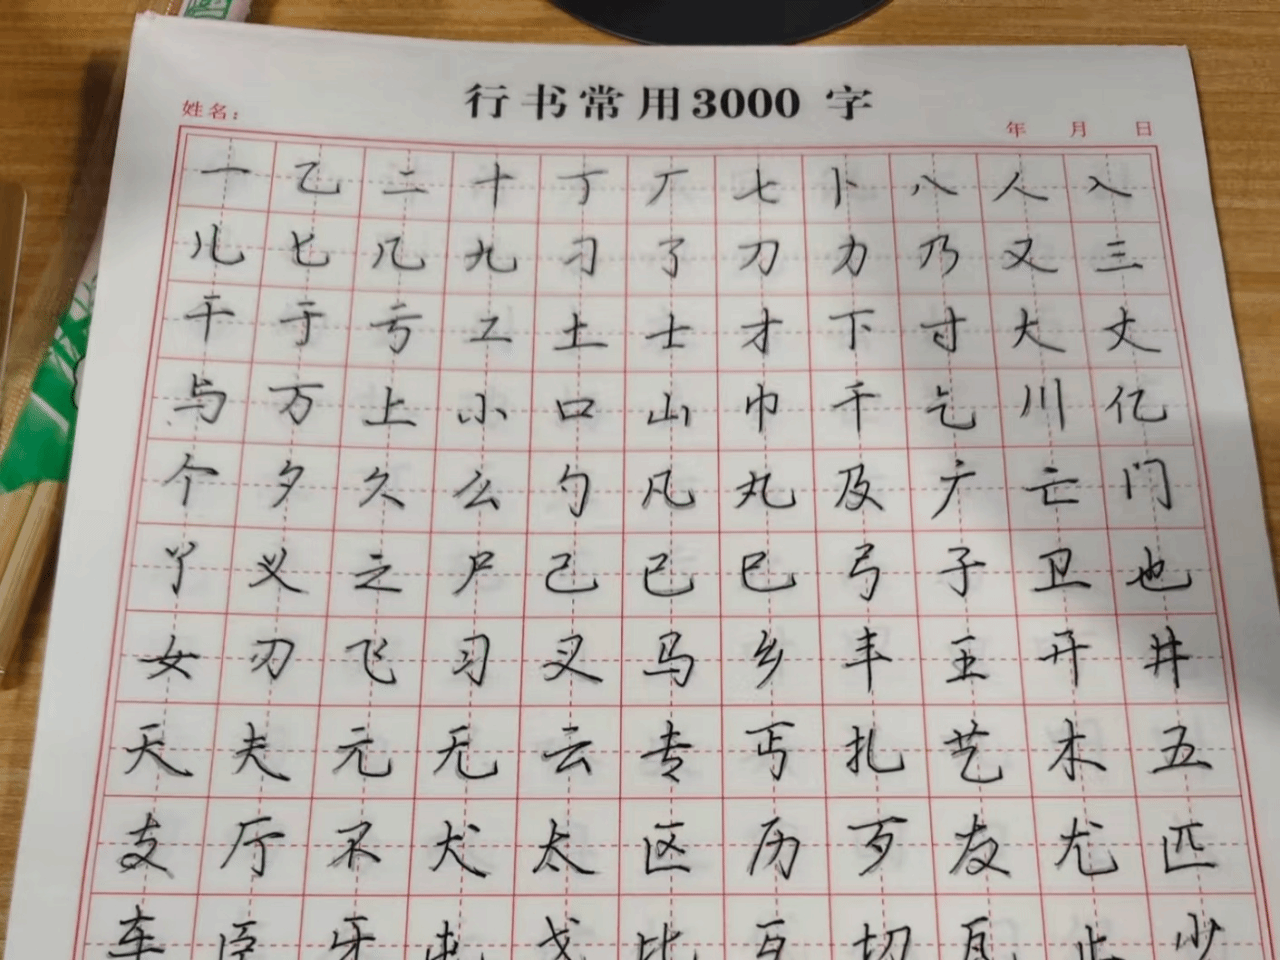 行书常用3000 字
姓名：
年 月 日
一 乙 二 十 丁 厂 七 卜 八 人 入
儿 匕 几 九 刁 了 刀 力 乃 又 三
干 于 亏 工 土 士 才 下 寸 大 丈
与 万 上 小 口 山 巾 千 乞 川 亿
个 夕 久 么 勺 凡 丸 及 广 亡 门
丫 义 之 尸 己 已 巳 弓 子 卫 也
女 刃 飞 习 叉 马 乡 丰 王 开 井
天 夫 元 无 云 专 丐 扎 艺 木 五
支 厅 不 犬 太 区 历 歹 友 尤 匹
车 臣 牙 屯 戈 比 互 切 瓦 止 少